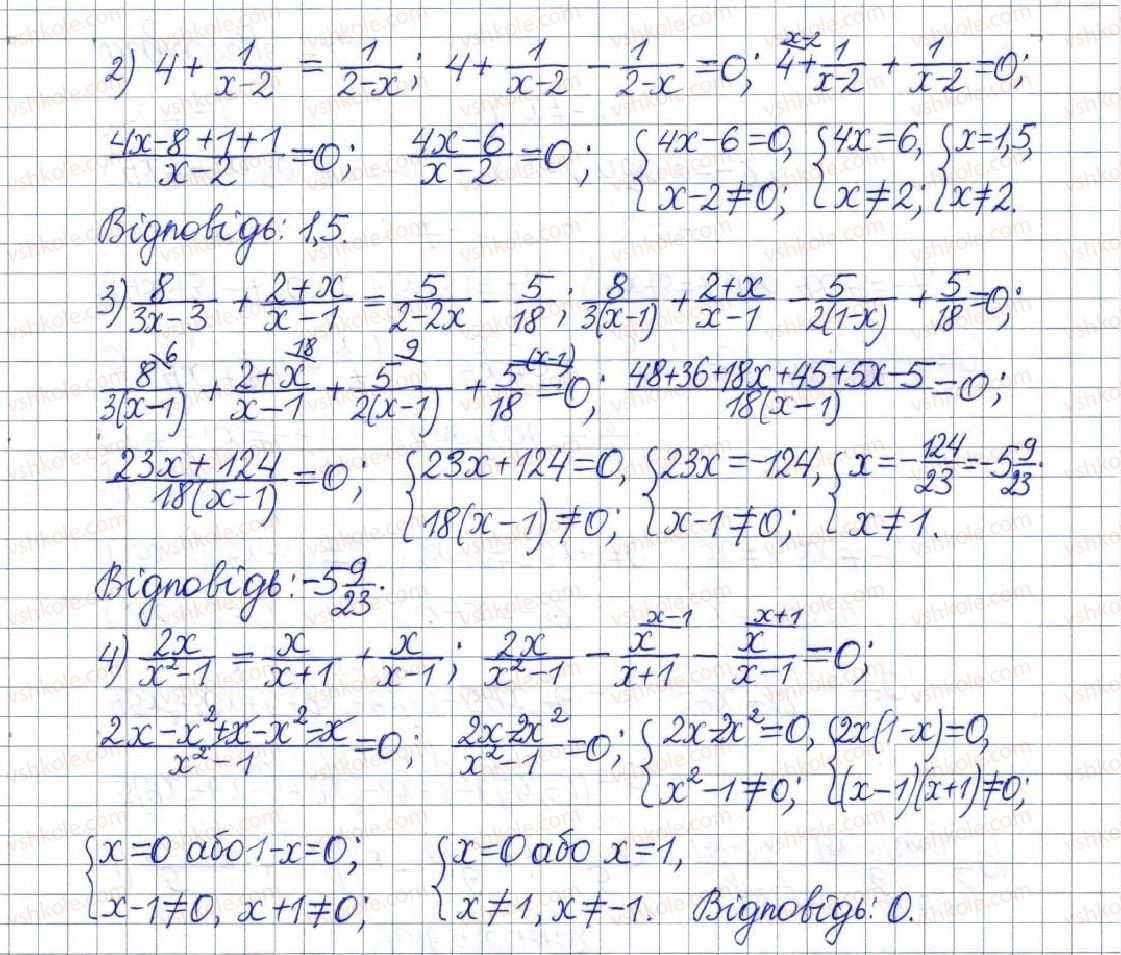 2) 4 + 1/(x-2) = 1/(2-x); 4 + 1/(x-2) - 1/(2-x) = 0; 4^(x-2) + 1/(x-2) + 1/(x-2) = 0;
(4x-8+1+1)/(x-2) = 0; (4x-6)/(x-2) = 0; {4x-6=0, x-2≠0; {4x=6, x≠2; {x=1,5, x≠2.
Відповідь: 1,5.
3) 8/(3x-3) + (2+x)/(x-1) = 5/(2-2x) - 5/18; 8/(3(x-1)) + (2+x)/(x-1) - 5/(2(1-x)) + 5/18 = 0;
8^(6)/(3(x-1)) + (2+x)^(18)/(x-1) + 5^(9)/(2(x-1)) + 5^(x-1)/18 = 0; (48+36+18x+45+5x-5)/(18(x-1)) = 0;
(23x+124)/(18(x-1)) = 0; {23x+124=0, 18(x-1)≠0; {23x=-124, x-1≠0; {x=-124/23=-5 9/23. x≠1.
Відповідь: -5 9/23.
4) 2x/(x²-1) = x/(x+1) + x/(x-1); 2x/(x²-1) - x^(x-1)/(x+1) - x^(x+1)/(x-1) = 0;
(2x-x²+x-x²-x)/(x²-1) = 0; (2x-2x²)/(x²-1) = 0; {2x-2x²=0, x²-1≠0; {2x(1-x)=0, (x-1)(x+1)≠0;
{x=0 або 1-x=0; x-1≠0, x+1≠0; {x=0 або x=1, x≠1, x≠-1. Відповідь: 0.